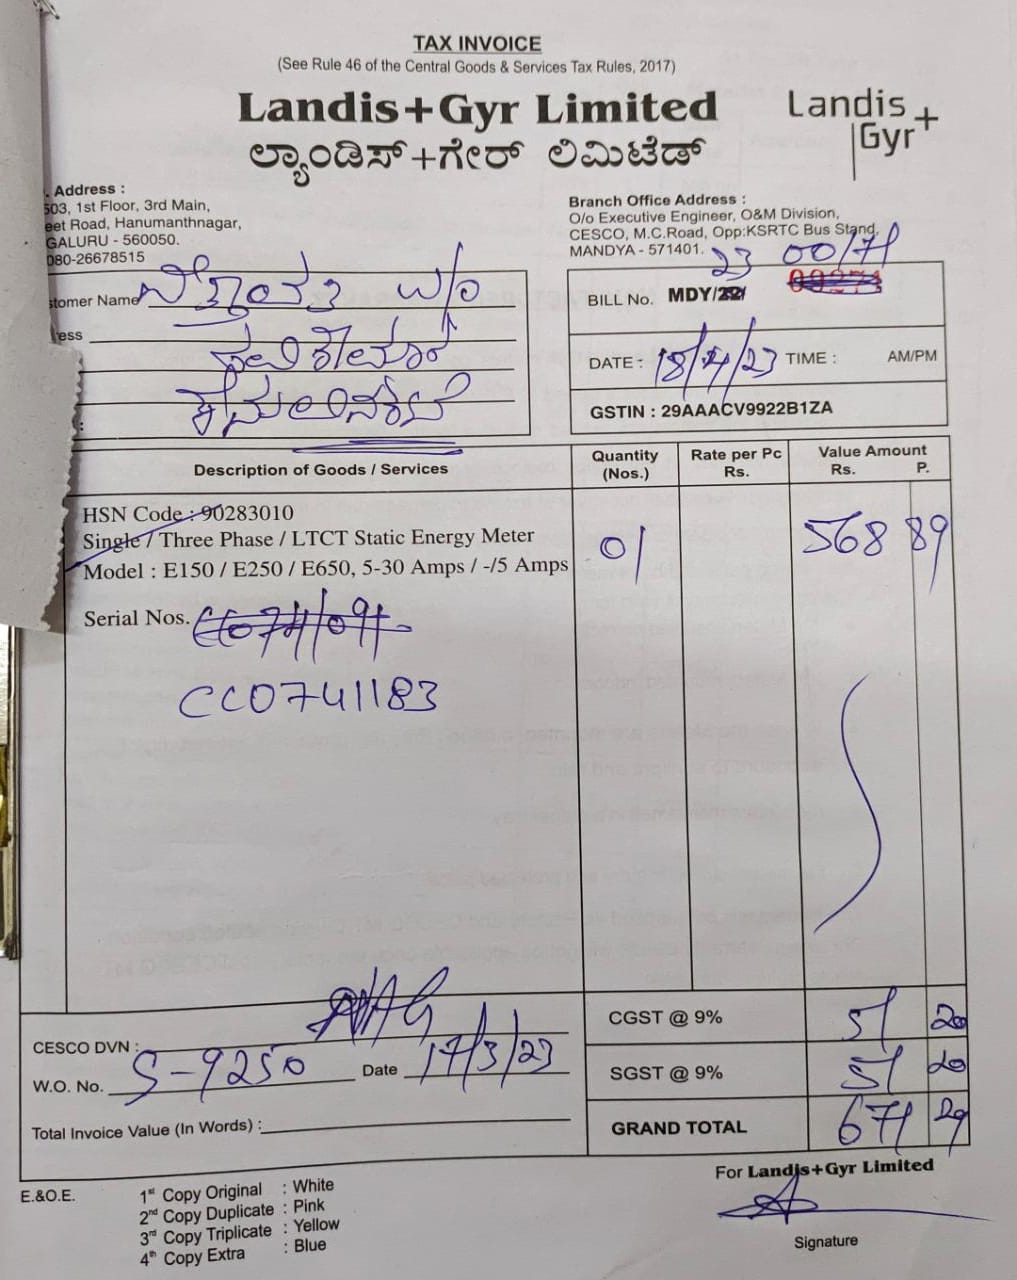 TAX INVOICE
(See Rule 46 of the Central Goods & Services Tax Rules, 2017)
Landis+Gyr Limited
ಲ್ಯಾಂಡಿಸ್+ಗೇರ್ ಲಿಮಿಟೆಡ್
Landis+
Gyr
. Address :
503, 1st Floor, 3rd Main,
eet Road, Hanumanthnagar,
GALURU - 560050.
080-26678515
Branch Office Address :
O/o Executive Engineer, O&M Division,
CESCO, M.C.Road, Opp:KSRTC Bus Stand,
MANDYA - 571401.
stomer Name
ress
BILL No. MDY/23 00/71
DATE : 18/4/23 TIME : AM/PM
GSTIN : 29AAACV9922B1ZA
Description of Goods / Services
Quantity (Nos.)
Rate per Pc Rs.
Value Amount Rs. P.
HSN Code : 90283010
Single / Three Phase / LTCT Static Energy Meter
Model : E150 / E250 / E650, 5-30 Amps / -/5 Amps
01
568 89
Serial Nos.
CC0741183
CGST @ 9% 51 20
CESCO DVN :
W.O. No. S-9250 Date 17/3/23
SGST @ 9% 51 20
Total Invoice Value (In Words) :
GRAND TOTAL 671 29
E.&O.E.
1st Copy Original : White
2nd Copy Duplicate : Pink
3rd Copy Triplicate : Yellow
4th Copy Extra : Blue
For Landis+Gyr Limited
Signature